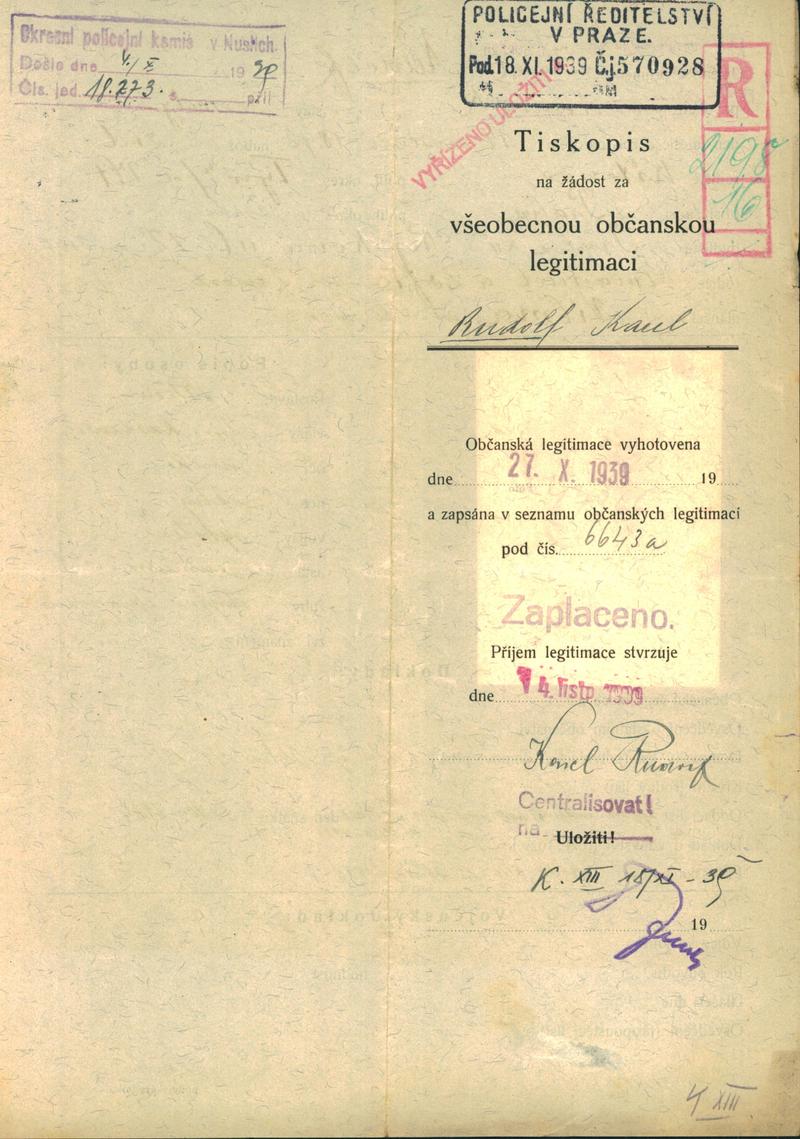 Okresní policejní komis v Nuslích.
Došlo dne 19 39
Čís. jed. 18.273. s příl
POLICEJNÍ ŘEDITELSTVÍ
V PRAZE.
Pod. 18. XI. 1939 Čj. 570928
R
2198
16
VYŘÍZENO ULOŽIT
Tiskopis
na žádost za
všeobecnou občanskou
legitimaci
Rudolf Kaul
Občanská legitimace vyhotovena
dne 27. X. 1939 19
a zapsána v seznamu občanských legitimací
pod čís. 6643a
Zaplaceno.
Příjem legitimace stvrzuje
dne 4. listp 1939
Centralisovat!
na Uložiti!
K. XIII 18/XI - 39
19
4 XIII